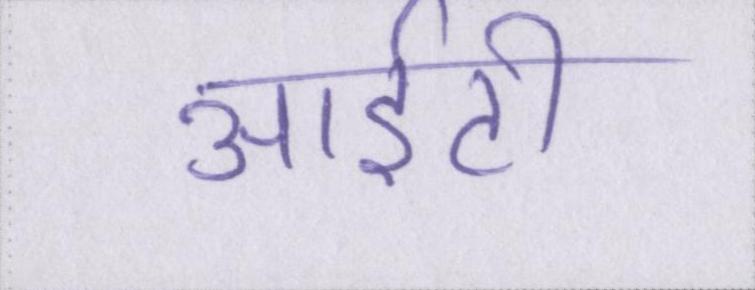 आईटी